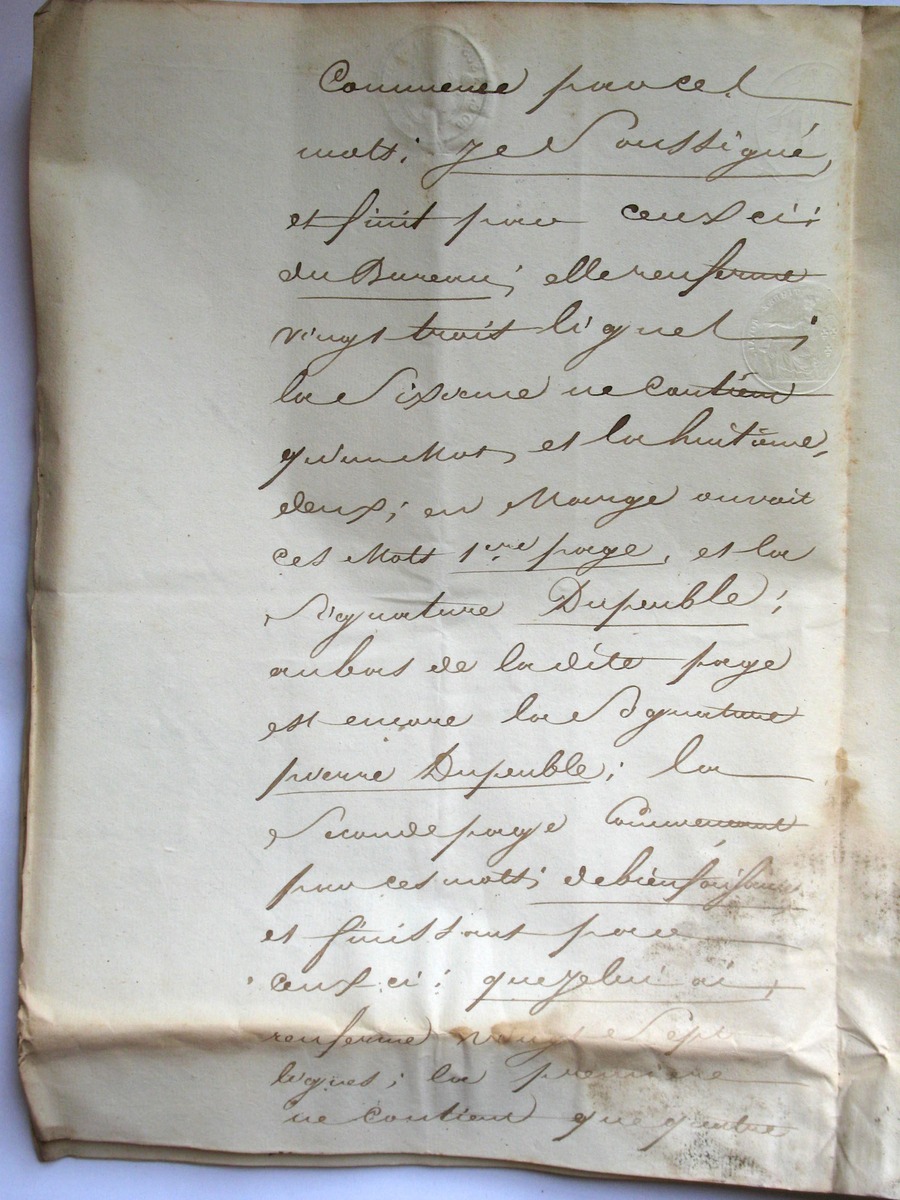 Commence par ces
mots; Je Soussigné,
et finit par ceux ci:
du Bureau; elle renferme
vingt trois lignes;
la Sixieme ne contient
qu'un Mot, et la huitième,
deux; en Marge auroit
ces Mots 1ere page, et la
Signature Dupeuble;
au bas de la dite page
est encore la Signature
pierre Dupeuble; la
Seconde page Commencant
par ces mots; de bienfaisance
et finissant par
ceux ci: que je lui ai,
renferme vingt Sept
lignes; la premiere
ne contient que quatre